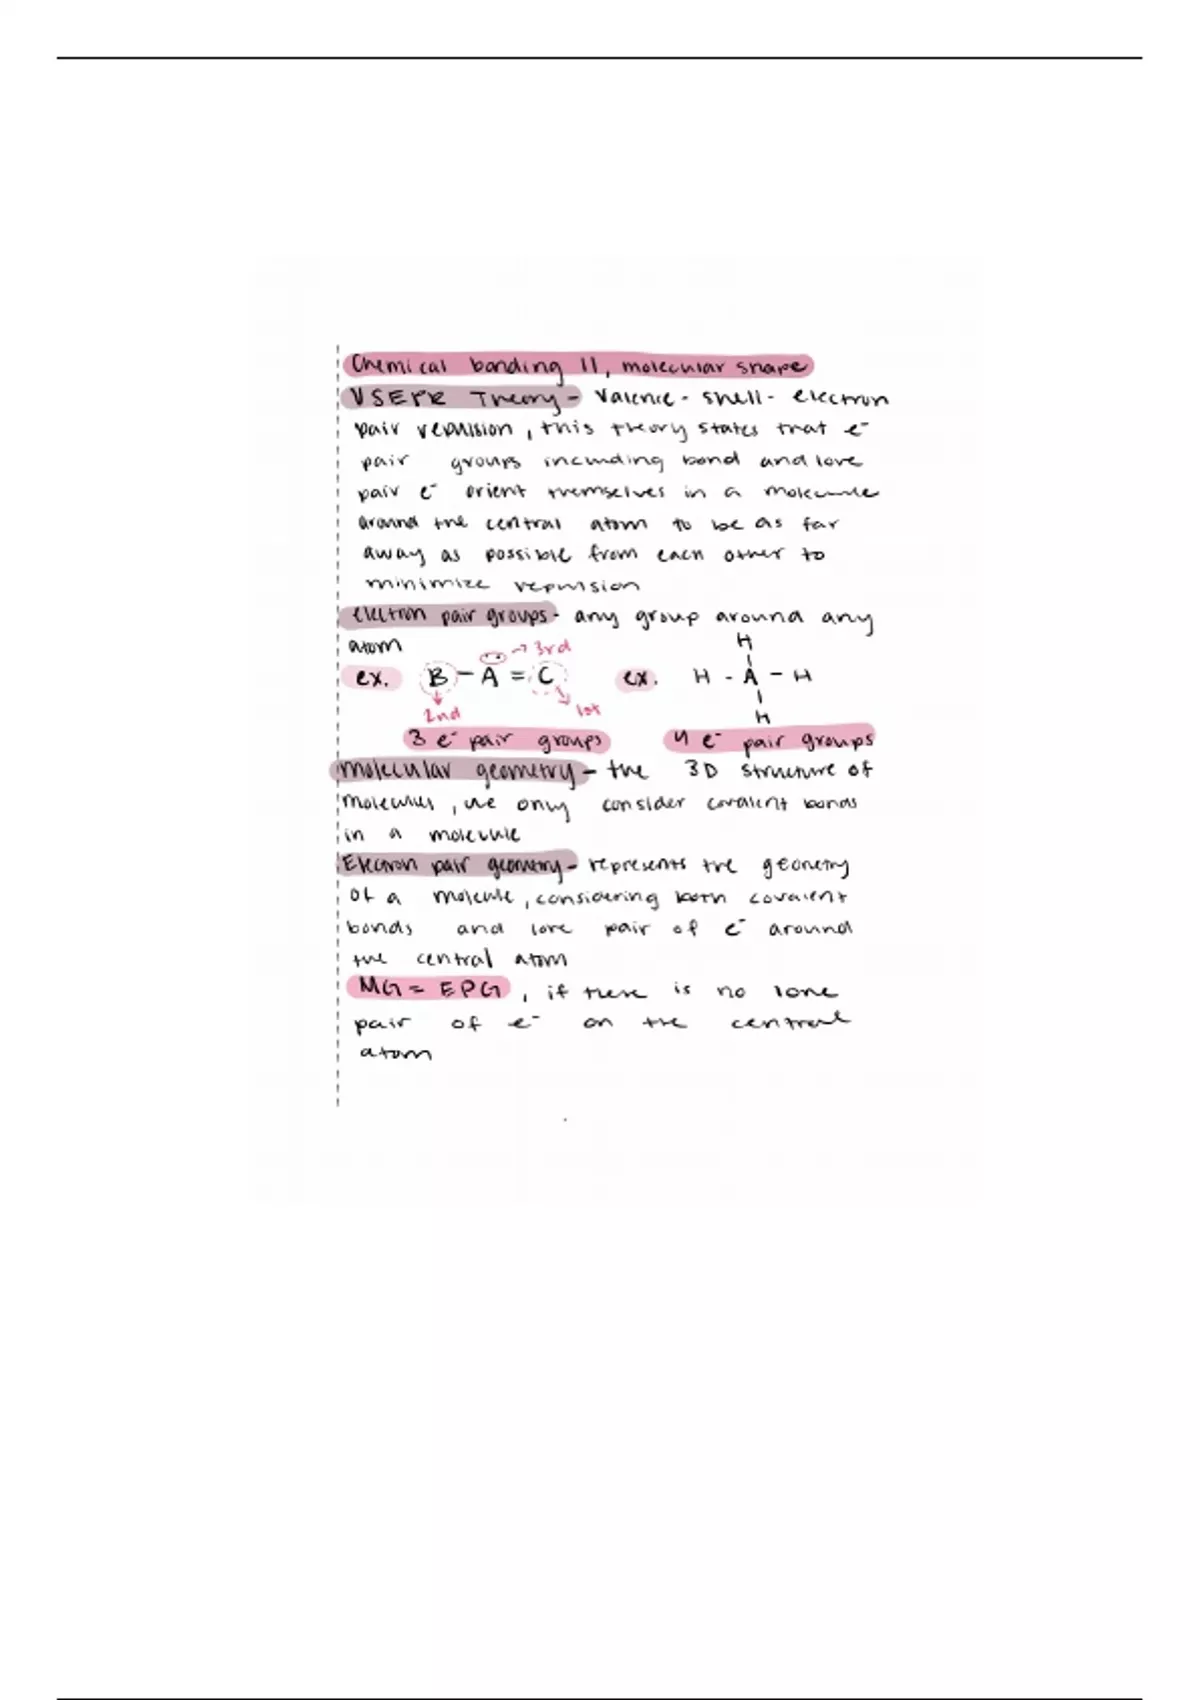 Chemical bonding II, molecular shape
VSEPR Theory - Valence - shell - electron
pair repulsion, this theory states that e⁻
pair groups including bond and lone
pair e⁻ orient themselves in a molecule
around the central atom to be as far
away as possible from each other to
minimize repulsion
electron pair groups - any group around any
atom
→ 3rd
H
ex. B - A = C
ex. H - A - H
2nd
1st
H
3 e⁻ pair groups
4 e⁻ pair groups
molecular geometry - the 3D structure of
molecules, we only consider covalent bonds
in a molecule
Electron pair geometry - represents the geometry
of a molecule, considering both covalent
bonds and lone pair of e⁻ around
the central atom
MG = EPG, if there is no lone
pair of e⁻ on the central
atom